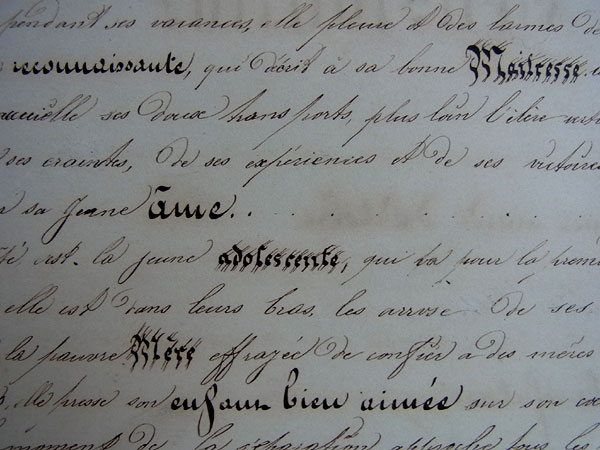 pendant ses vacances, elle pleure et des larmes de
reconnaissante, qui écrit à sa bonne Maitresse.
ses doux transports, plus loin l'élève
ses craintes, de ses expériences et de ses victoires
sa jeune âme. . . . . . . . .
est la jeune adolescente, qui va pour la première
elle est dans leurs bras, les arrose de ses
la pauvre Mère effrayée de confier à des mères
elle presse son enfant bien aimée sur son
moment de la séparation approche tous les